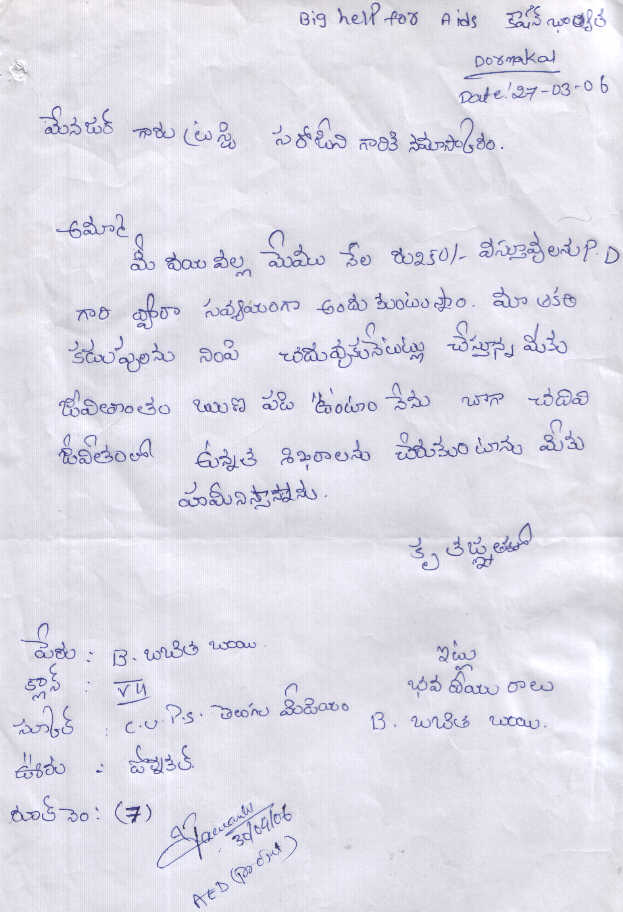 Big help for Aids
Dornakal
Date: 27-03-06
మేనేజర్ గారు ట్రస్టి సరోజిని గారికి నమస్కారం.
అమ్మా
మీ దయ వల్ల మేము నెల రు250/- విస్తువులను P.D
గారి ద్వారా సవ్యయంగా అందుకుంటున్నాం. మా ఆకలి
కడుపులను నింపి చదువుకునేటట్లు చేస్తున్న మీకు
జీవితాంతం ఋణ పడి ఉంటాం నేను బాగా చదివి
జీవితంలో ఉన్నత శిఖరాలను చేరుకుంటాను మీకు
హామీనిస్తున్నాను.
కృతజ్ఞతతో
పేరు : B. బబిత బాయి.
క్లాస్ : VII
స్కూల్ : C.U.P.S. తెలుగు మీడియం
ఊరు :
రూట్ నెం: (7)
ఇట్లు
భవదీయురాలు
B. బబిత బాయి.
30/04/06